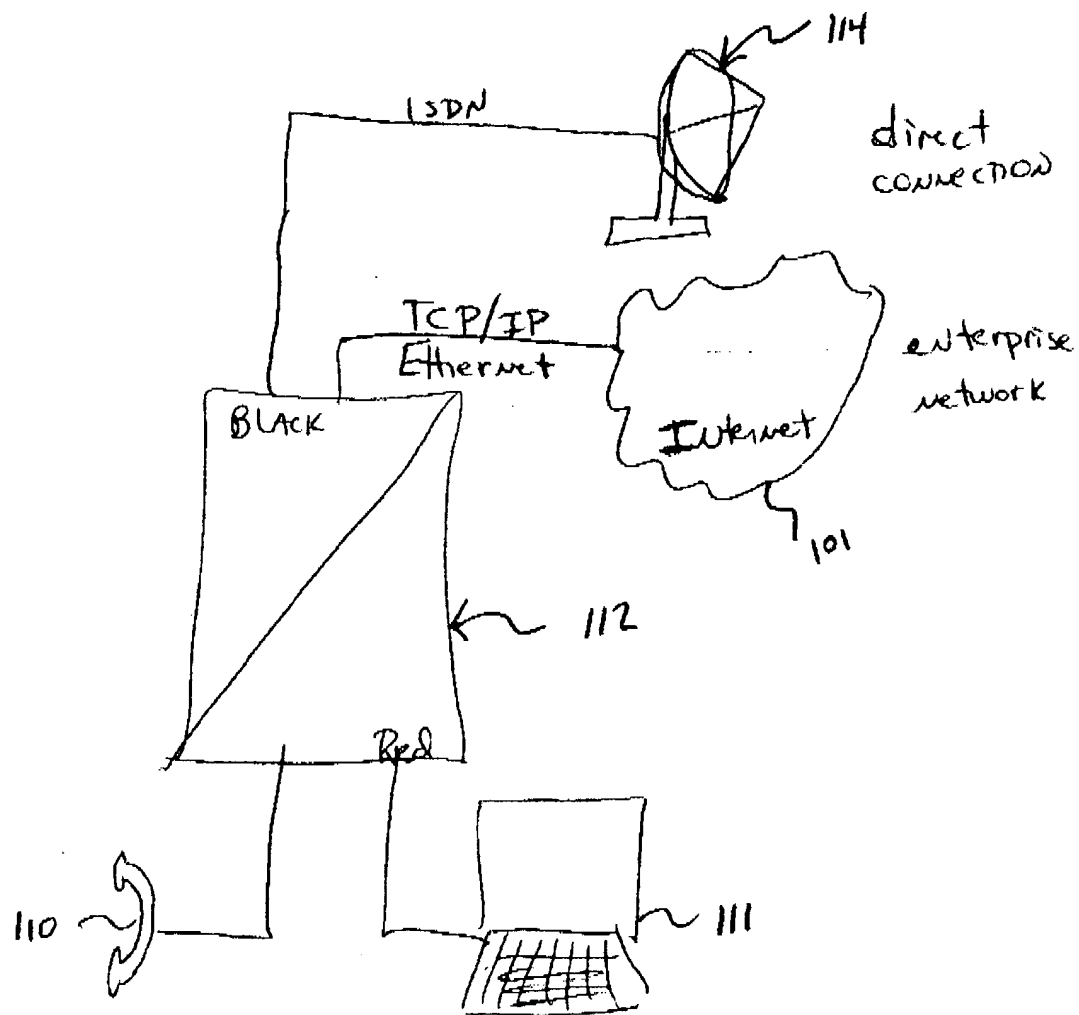 114
ISDN
direct
CONNECTION
TCP/IP
Ethernet
enterprise
network
BLACK
Internet
101
112
Red
110
111